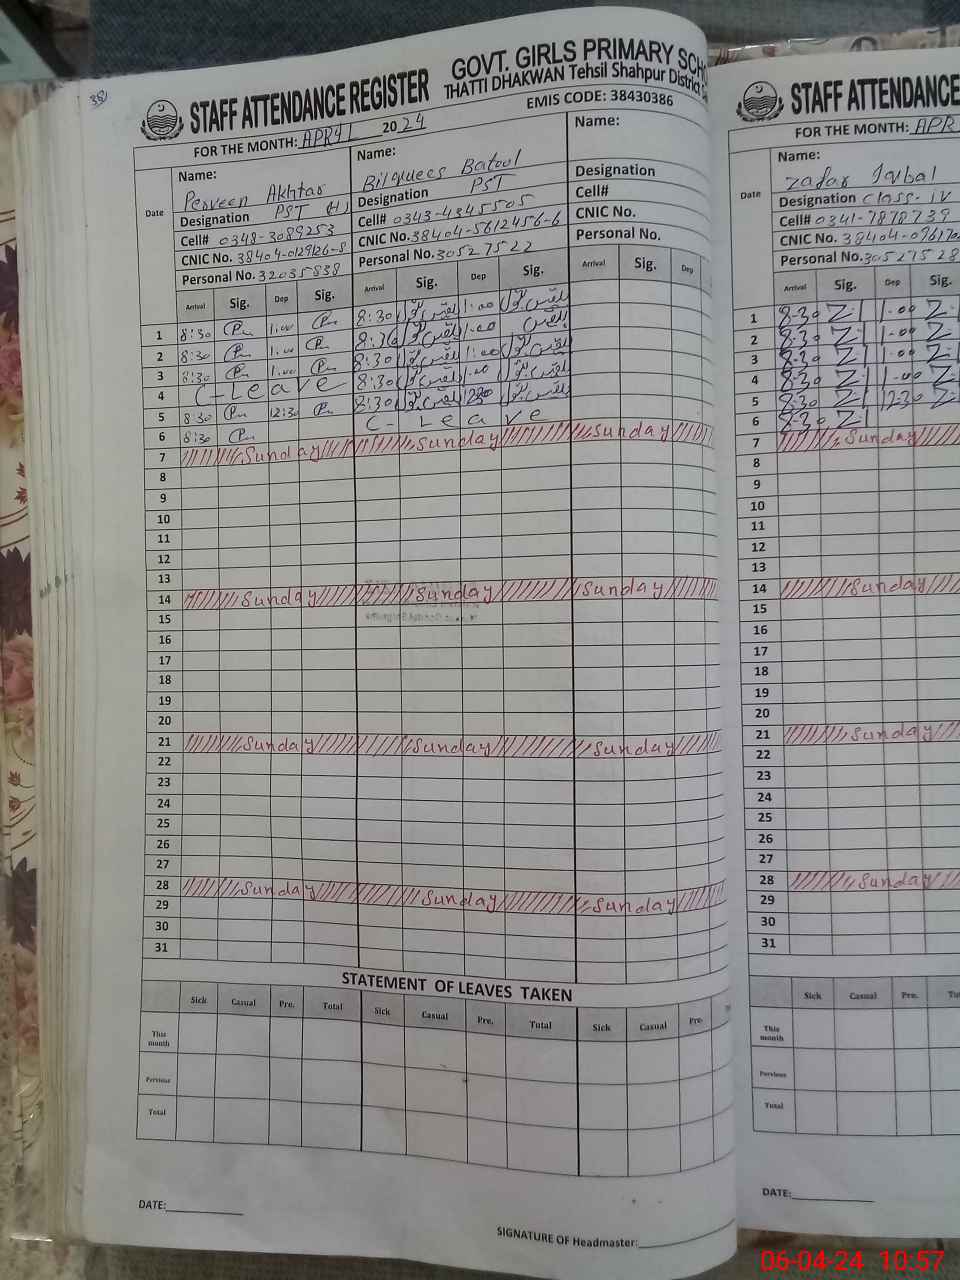 38
STAFF ATTENDANCE REGISTER
GOVT. GIRLS PRIMARY SCHO
THATTI DHAKWAN Tehsil Shahpur District
EMIS CODE: 38430386
FOR THE MONTH: APR41 2024
Date
Name: Perveen Akhtar
Designation PST (H)
Cell# 0348-3089253
CNIC No. 38404-0129126-8
Personal No. 32035838
Name: Bilquees Batool
Designation PST
Cell# 0343-4345505
CNIC No. 38404-5612456-6
Personal No. 30527522
Name:
Designation
Cell#
CNIC No.
Personal No.
Arrival Sig. Dep Sig. Arrival Sig. Dep Sig. Arrival Sig. Dep
1 8:30 1:00 8:30 بلقیس بتول 1:00 بلقیس
2 8:30 1:00 8:30 بلقیس بتول 1:00 بلقیس
3 8:30 1:00 8:30 بلقیس بتول 1:00 بلقیس
4 C-Leave 8:30 بلقیس بتول 1:00 بلقیس
5 8:30 12:30 8:30 بلقیس بتول 1230 بلقیس
6 8:30 C-Leave
7 Sunday Sunday Sunday
8
9
10
11
12
13
14 Sunday Sunday Sunday
15
16
17
18
19
20
21 Sunday Sunday Sunday
22
23
24
25
26
27
28 Sunday Sunday Sunday
29
30
31
STATEMENT OF LEAVES TAKEN
Sick Casual Pre. Total Sick Casual Pre. Total Sick Casual Pre
This month
Pervious
Total
DATE:
SIGNATURE OF Headmaster:
STAFF ATTENDANCE
FOR THE MONTH: APR
Date
Name: Zafar Iqbal
Designation Class-iv
Cell# 0341-7878739
CNIC No. 38404-09617
Personal No. 30527528
Arrival Sig. Dep Sig.
1 8-30 Z-1 1-00 Z-
2 8-30 Z-1 1-00 Z-
3 8-30 Z-1 1-00 Z-
4 8-30 Z-1 1-00 Z-
5 8-30 Z-1 12-30 Z-
6 8-30 Z-1
7 Sunday
8
9
10
11
12
13
14 Sunday
15
16
17
18
19
20
21 Sunday
22
23
24
25
26
27
28 Sunday
29
30
31
Sick Casual Pre.
This month
Pervious
Total
DATE:
06-04-24 10:57